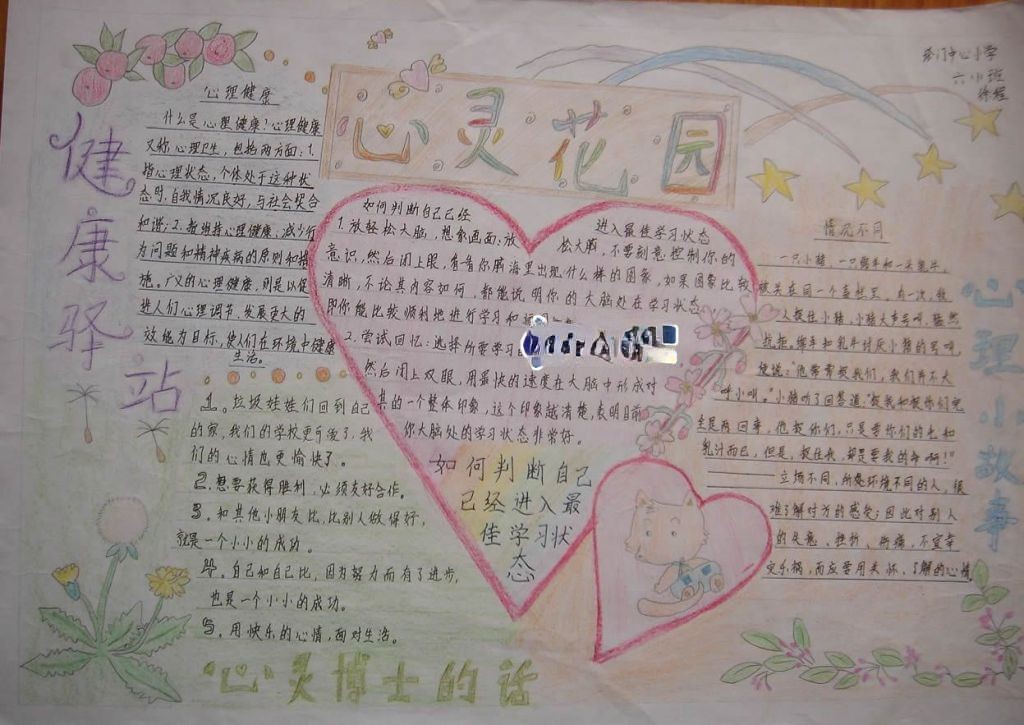 心灵花园
中心小学
六小班
健康驿站
心理健康
什么是心理健康?心理健康
又称心理卫生,包括两方面:1.
指心理状态,个体处于这种状
态时,自我情况良好,与社会契合
和谐;2.指维持心理健康、减少行
为问题和精神疾病的原则和措
施。广义的心理健康,则是以促
进人们心理调节、发展更大的
效能为目标,使人们在环境中健康
生活。
1。垃圾娃娃们回到自己
的家,我们的学校更干净了,我
们的心情也更愉快了。
2.想要获得胜利,必须友好合作。
3、和其他小朋友比,比别人做得好,
就是一个小小的成功。
4、自己和自己比,因为努力而有了进步,
也是一个小小的成功。
5、用快乐的心情,面对生活。
心灵博士的话
如何判断自己已经
进入最佳学习状态
1.放轻松大脑,想象画面:放
松大脑,不要刻意控制你的
意识,然后闭上眼,看看你脑海里出现什么样的图象,如果图象比较
清晰,不论其内容如何,都能说明你的大脑处在学习状态
即你能比较顺利地进行学习和
2.尝试回忆:选择所要学习
然后闭上双眼,用最快的速度在大脑中形成对
其的一个整体印象,这个印象越清楚,表明目前
你大脑处的学习状态非常好。
如何判断自己
已经进入最
佳学习状
态
心理小故事
情况不同
一只小猪、一只绵羊和一头乳牛,
被关在同一个畜栏里。有一次,牧
人捉住小猪,小猪大声号叫,猛烈
抗拒。绵羊和乳牛讨厌小猪的号叫,
便说:“他常常捉我们,我们并不大
呼小叫。”小猪听了回答道:“捉我和捉你们完
全是两回事,他捉你们,只是要你们的毛和
乳汁而已,但是,捉住我,却是要我的命啊!”
立场不同,所处环境不同的人,很
难了解对方的感受;因此对别人
的失意、挫折、伤痛,不宜幸
灾乐祸,而应要用关怀、了解的心情